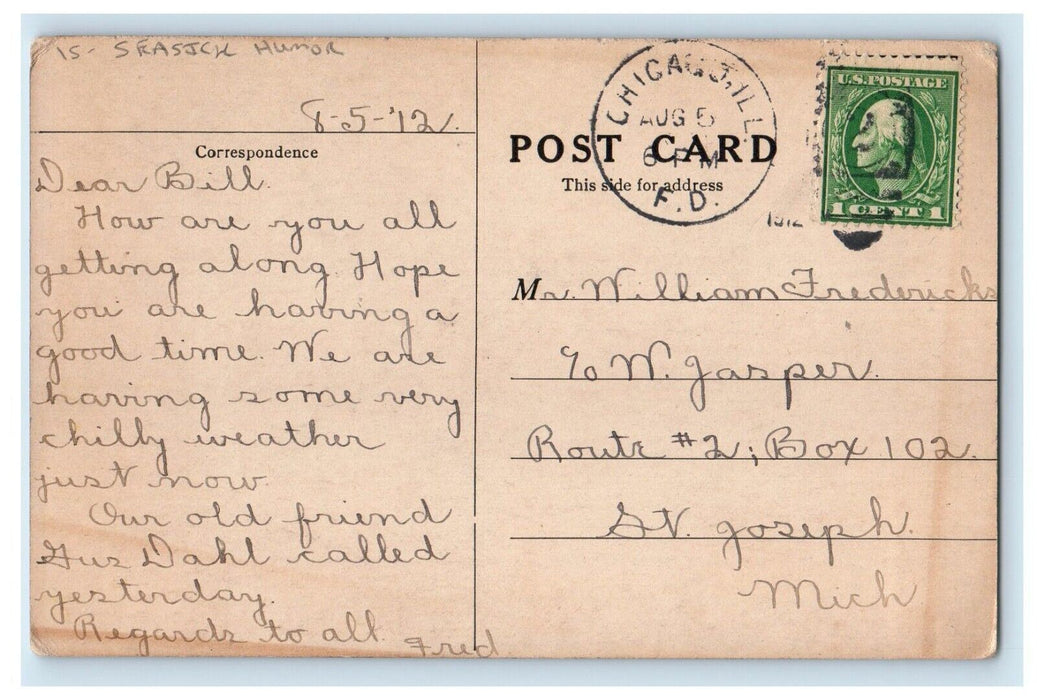 15- SEASICK HUMOR
8-5-'12.
Correspondence
Dear Bill.
How are you all
getting along. Hope
you are having a
good time. We are
having some very
chilly weather
just now.
Our old friend
Gus Dahl called
yesterday.
Regards to all.
Fred
CHICAGO, ILL
AUG 5
6 PM
F.D.
1912
U.S. POSTAGE
1 CENT 1
POST CARD
This side for address
Mr. William Fredericks
c/o W. Jasper.
Route #2; Box 102.
St. Joseph.
Mich